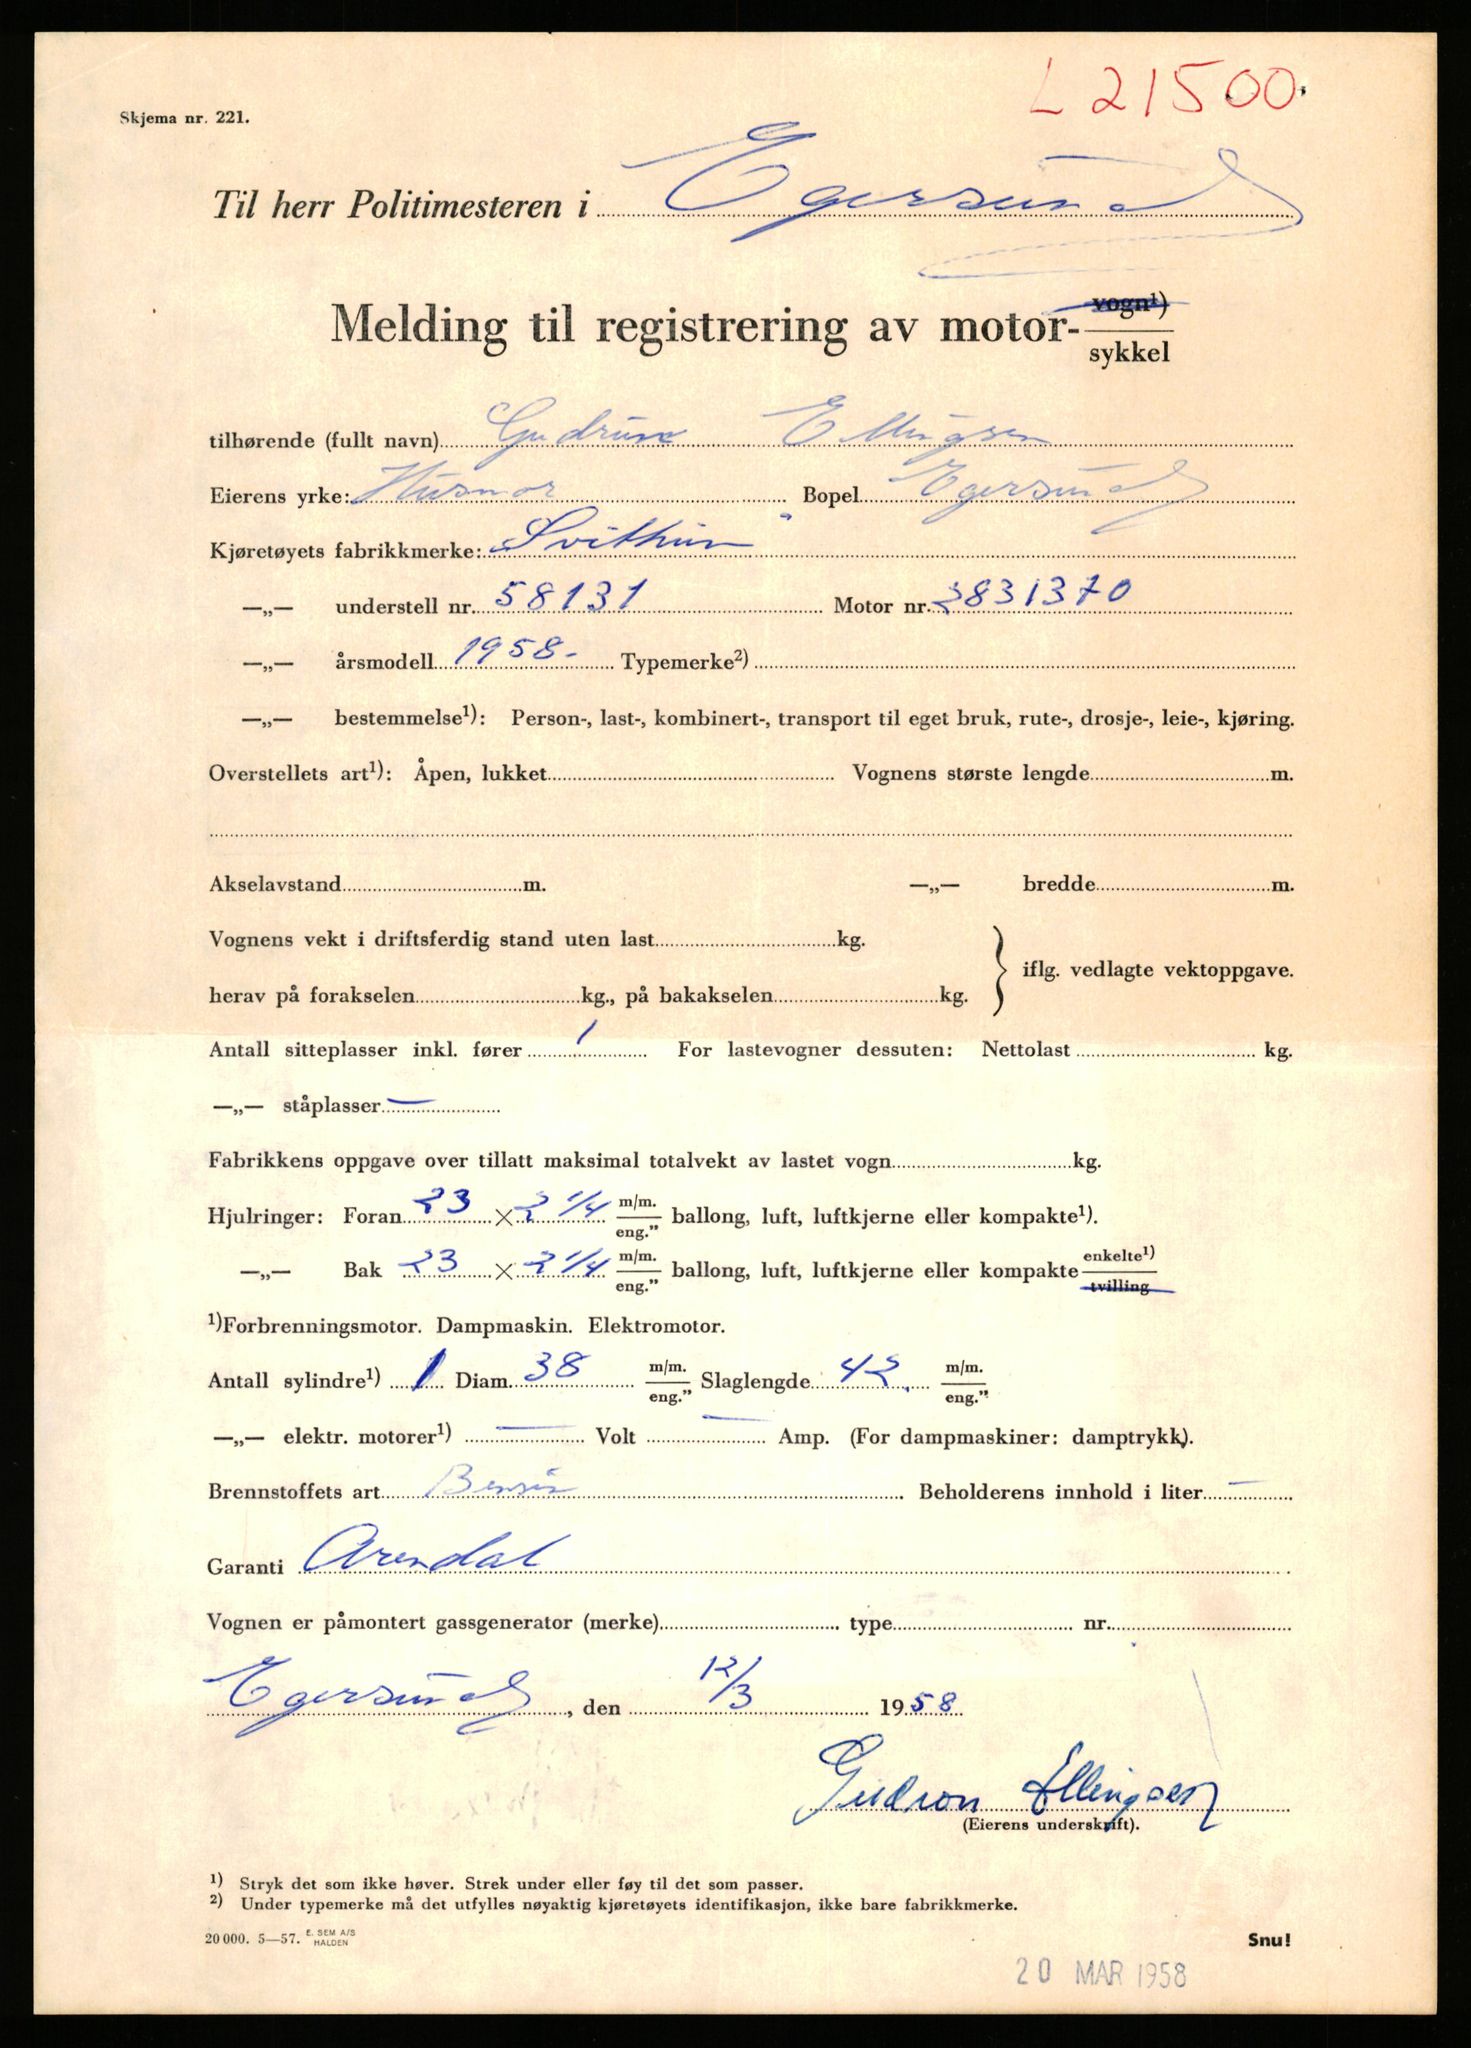 L 21500
Skjema nr. 221.
Til herr Politimesteren i Egersund
Melding til registrering av motor- vogn¹)
sykkel
tilhørende (fullt navn) Gudrun Ellingsen
Eierens yrke: Husmor Bopel Egersund
Kjøretøyets fabrikkmerke: Svithun
—„— understell nr. 58131 Motor nr. 2831370
—„— årsmodell 1958- Typemerke²)
—„— bestemmelse¹): Person-, last-, kombinert-, transport til eget bruk, rute-, drosje-, leie-, kjøring.
Overstellets art¹): Åpen, lukket Vognens største lengde m.
Akselavstand m. —„— bredde m.
Vognens vekt i driftsferdig stand uten last kg.
iflg. vedlagte vektoppgave.
herav på forakselen kg., på bakakselen kg.
Antall sitteplasser inkl. fører 1 For lastevogner dessuten: Nettolast kg.
—„— ståplasser —
Fabrikkens oppgave over tillatt maksimal totalvekt av lastet vogn kg.
Hjulringer: Foran 23 × 2 1/4 m/m. eng.” ballong, luft, luftkjerne eller kompakte¹).
—„— Bak 23 × 2 1/4 m/m. eng.” ballong, luft, luftkjerne eller kompakte enkelte¹) tvilling
¹)Forbrenningsmotor. Dampmaskin. Elektromotor.
Antall sylindre¹) 1 Diam. 38 m/m. eng.” Slaglengde 42 m/m. eng.”
—„— elektr. motorer¹) — Volt — Amp. (For dampmaskiner: damptrykk).
Brennstoffets art Bensin Beholderens innhold i liter —
Garanti Arendal
Vognen er påmontert gassgenerator (merke) type nr.
Egersund, den 12/3 1958
Gudron Ellingsen
(Eierens underskrift).
¹) Stryk det som ikke høver. Strek under eller føy til det som passer.
²) Under typemerke må det utfylles nøyaktig kjøretøyets identifikasjon, ikke bare fabrikkmerke.
20 000. 5—57. E. SEM A/S HALDEN
Snu!
20 MAR 1958